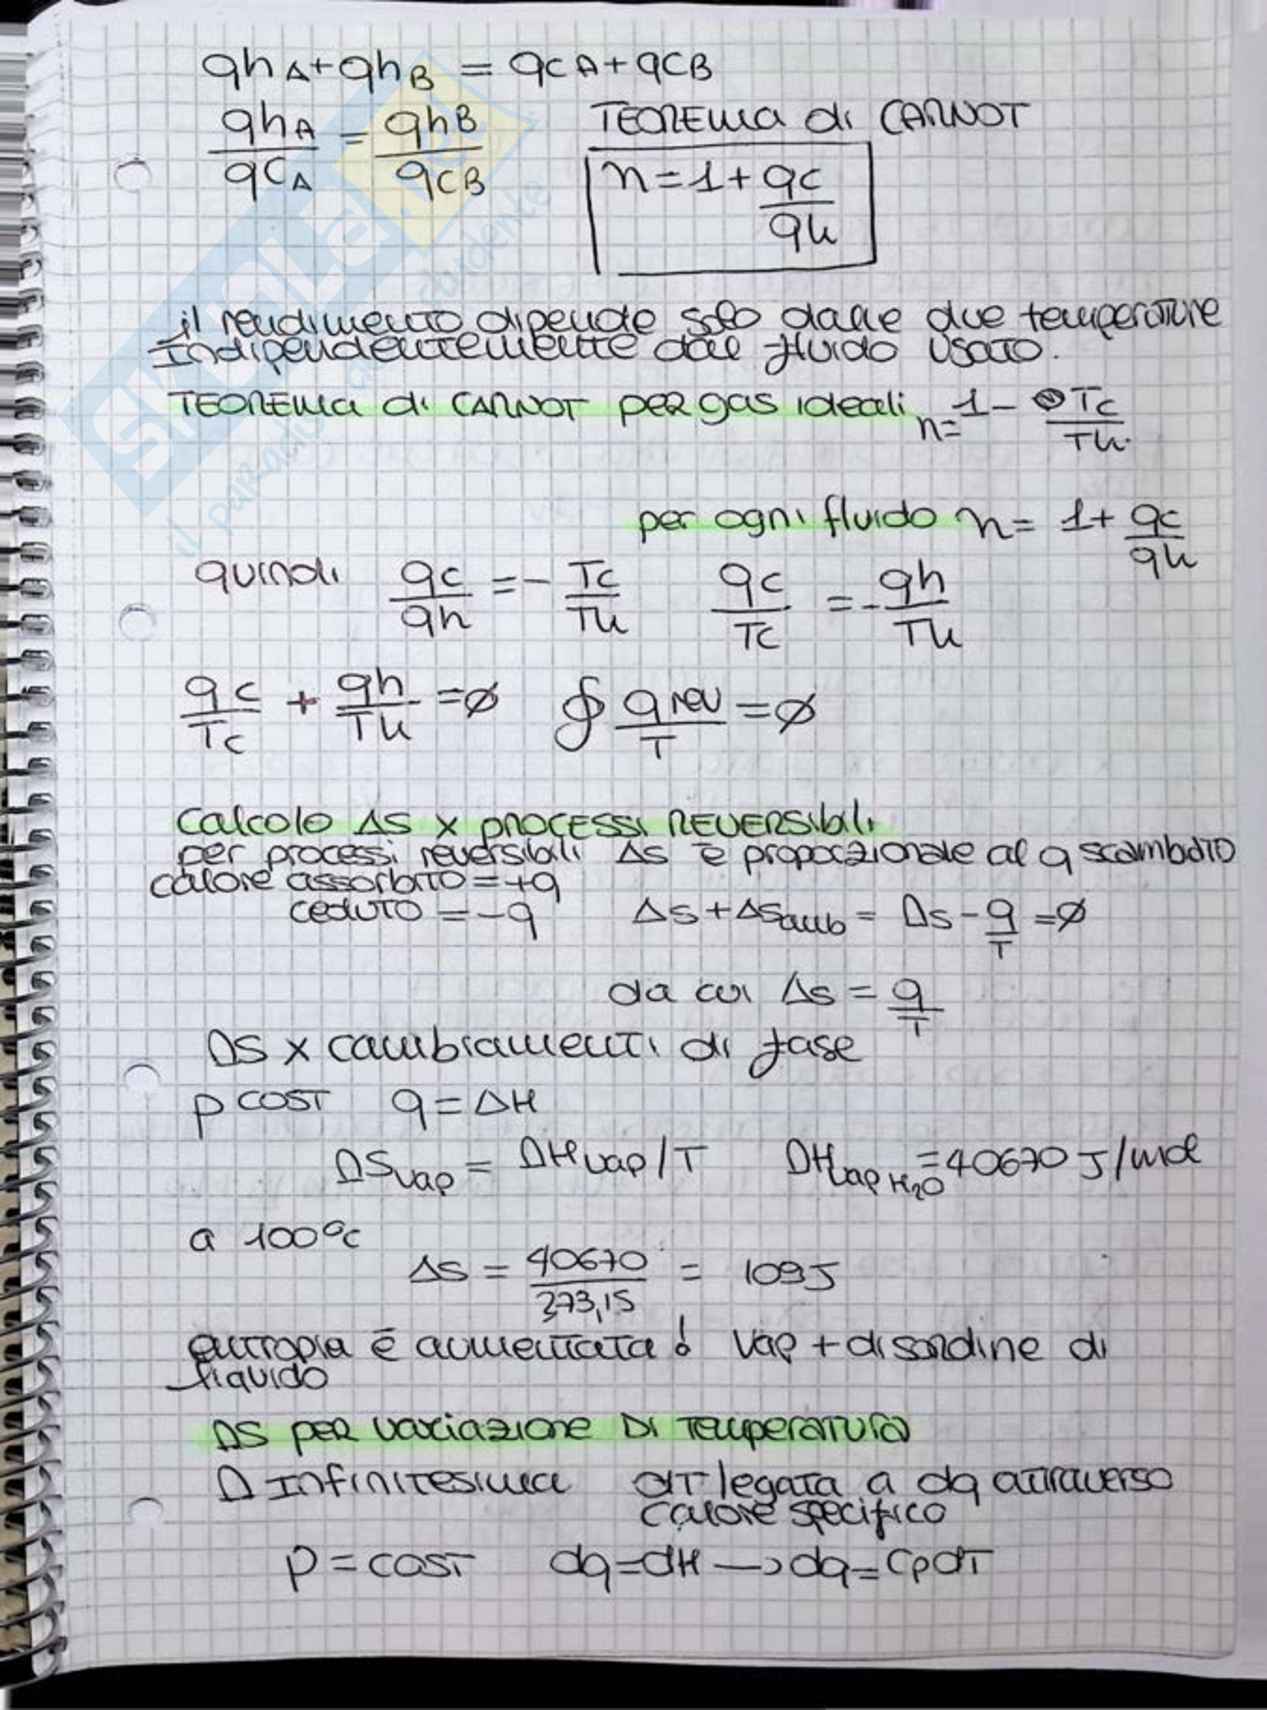 qhA+qhB = qcA+qcB
qhA/qcA = qhB/qcB
TEOREMA di CARNOT
n=1+qc/qh
il rendimento dipende solo dalle due temperature
Indipendentemente dal fluido usato.
TEOREMA di CARNOT per gas ideali n= 1- Tc/Th
per ogni fluido n= 1+ qc/qh
quindi qc/qh = - Tc/Th qc/Tc = - qh/Th
qc/Tc + qh/Th = ∅ ∮ qrev/T = ∅
Calcolo ΔS x PROCESSI REVERSIBILI
per processi reversibili ΔS è proporzionale al q scambato
calore assorbito = +q
ceduto = -q ΔS + ΔSamb = ΔS - q/T = ∅
da cui ΔS = q/T
ΔS x cambiamenti di fase
p cost q = ΔH
ΔSvap = ΔHvap/T ΔHvap H₂O = 40670 J/mol
a 100°c
ΔS = 40670/373,15 = 109J
entropia è aumentata! vap + disordine di
liquido
ΔS PER variazione DI Temperatura
Δ Infinitesima dT legata a dq attraverso
calore specifico
p = cost dq=dH → dq=CpdT
SKUOLA.net
il paradiso dello studente